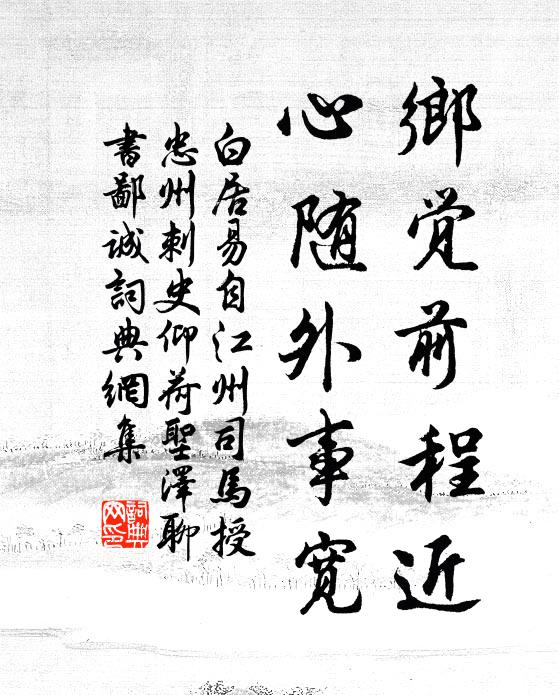 鄉觉前程近
心随外事寬
白居易自江州司馬授
忠州刺史仰荷聖澤聊
書鄙诚詞典網集
詞典网印